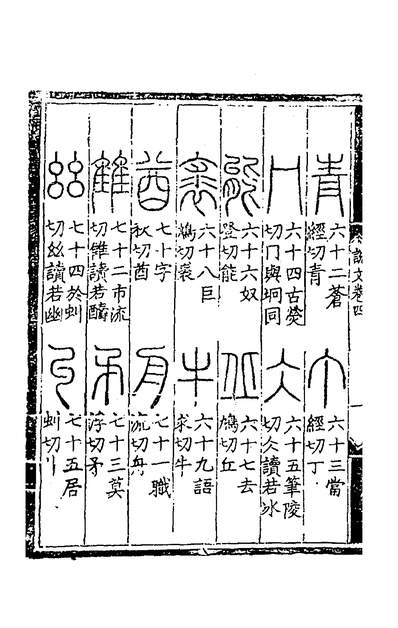 說文卷四
青
六十二蒼
經切青
丁
六十三當
經切丁
冂
六十四古熒
切冂與坰同
仌
六十五筆陵
切仌讀若冰
能
六十六奴
登切能
丘
六十七去
鳩切丘
裘
六十八巨
鳩切裘
牛
六十九語
求切牛
酋
七十字
秋切酋
舟
七十一職
流切舟
雔
七十二市流
切雔讀若醻
矛
七十三莫
浮切矛
𢆶
七十四於虯
切𢆶讀若幽
丩
七十五居
虯切丩